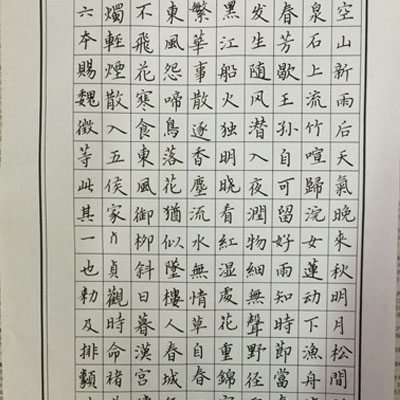 空山新雨后天氣晚来秋明月松間
泉石上流竹喧歸浣女蓮动下漁舟
春芳歇王孙自可留好雨知時節當
发生随风潜入夜潤物細無聲野径
黑江船火独明晓看紅湿處花重錦
繁華事散逐香塵流水無情草自春
東風怨啼鳥落花猶似墜樓人春城
不飛花寒食東風御柳斜日暮漢宫
燭輕煙散入五侯家貞觀時命褚
六本賜魏徵等此其一也勅及排類